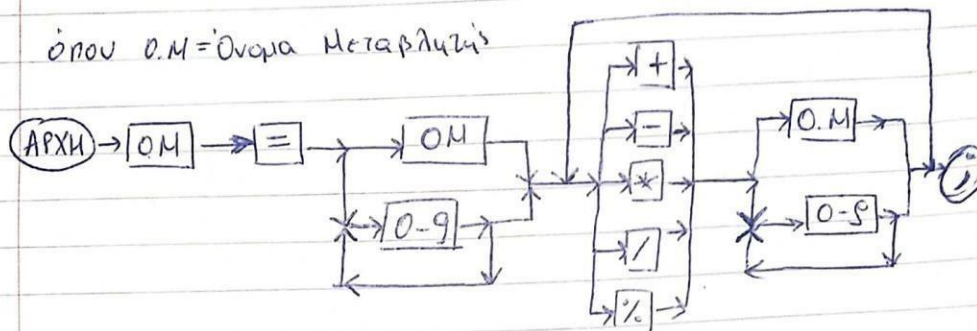 όπου Ο.Μ = Όνομα Μεταβλητής
ΑΡΧΗ
ΟΜ
=
ΟΜ
0-9
+
-
*
/
%
Ο.Μ
0-9
;